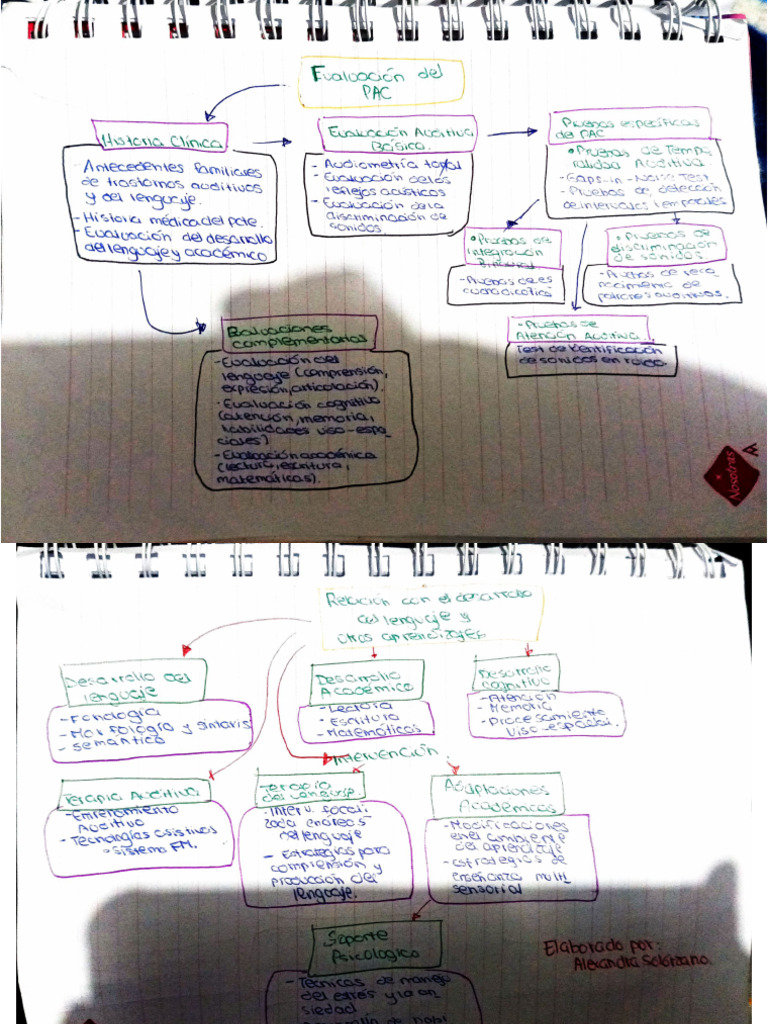 Evaluación del
PAC
Historia Clínica
- Antecedentes familiares
de trastornos auditivos
y del lenguaje.
- Historia médica del pcte.
- Evaluación del desarrollo
del lenguaje y académico
Evaluación Auditiva
Básica.
- Audiometría tonal
- Evaluación de los
reflejos acústicos
- Evaluación de la
discriminación de
sonidos.
Pruebas específicas
del PAC
• Pruebas de Tempo
ralidad Auditiva
- Gaps-in-Noise Test
- Pruebas de detección
de intervalos temporales
• Pruebas de
integración
Binaural
- Pruebas de es
cucha dicótica
• Pruebas de
discriminación
de sonidos
- Pruebas de reco
nocimiento de
patrones auditivos.
- Pruebas de
Atención Auditiva.
Test de identificación
de sonidos en ruido.
Evaluaciones
complementarias
- Evaluación del
lenguaje (comprensión,
expresión, articulación).
- Evaluación cognitiva
(atención, memoria,
habilidades viso-espa
ciales)
- Evaluación académica
(lectura, escritura,
matemáticas).
Nosotras
Relación con el desarrollo
del lenguaje y
otros aprendizajes
Desarrollo del
lenguaje
- Fonología
- Morfología y sintaxis
- semántica
Desarrollo
Académico
- Lectura
- Escritura
- Matemáticas
Desarrollo
cognitivo
- Atención
- Memoria
- Procesamiento
viso-espacial.
Intervención
Terapia Auditiva
- Entrenamiento
Auditivo
- Tecnologías asistivas
• Sistema FM.
Terapia
del lenguaje
- Interv. focali
zada en áreas
del lenguaje
- Estrategias para
comprensión y
producción del
lenguaje.
Adaptaciones
Académicas
- Modificaciones
en el ambiente
del aprendizaje
- estrategias de
enseñanza multi
sensorial
Soporte
Psicologico
- Técnicas de manejo
del estrés y la an
siedad
Elaborado por:
Alexandra Solórzano.